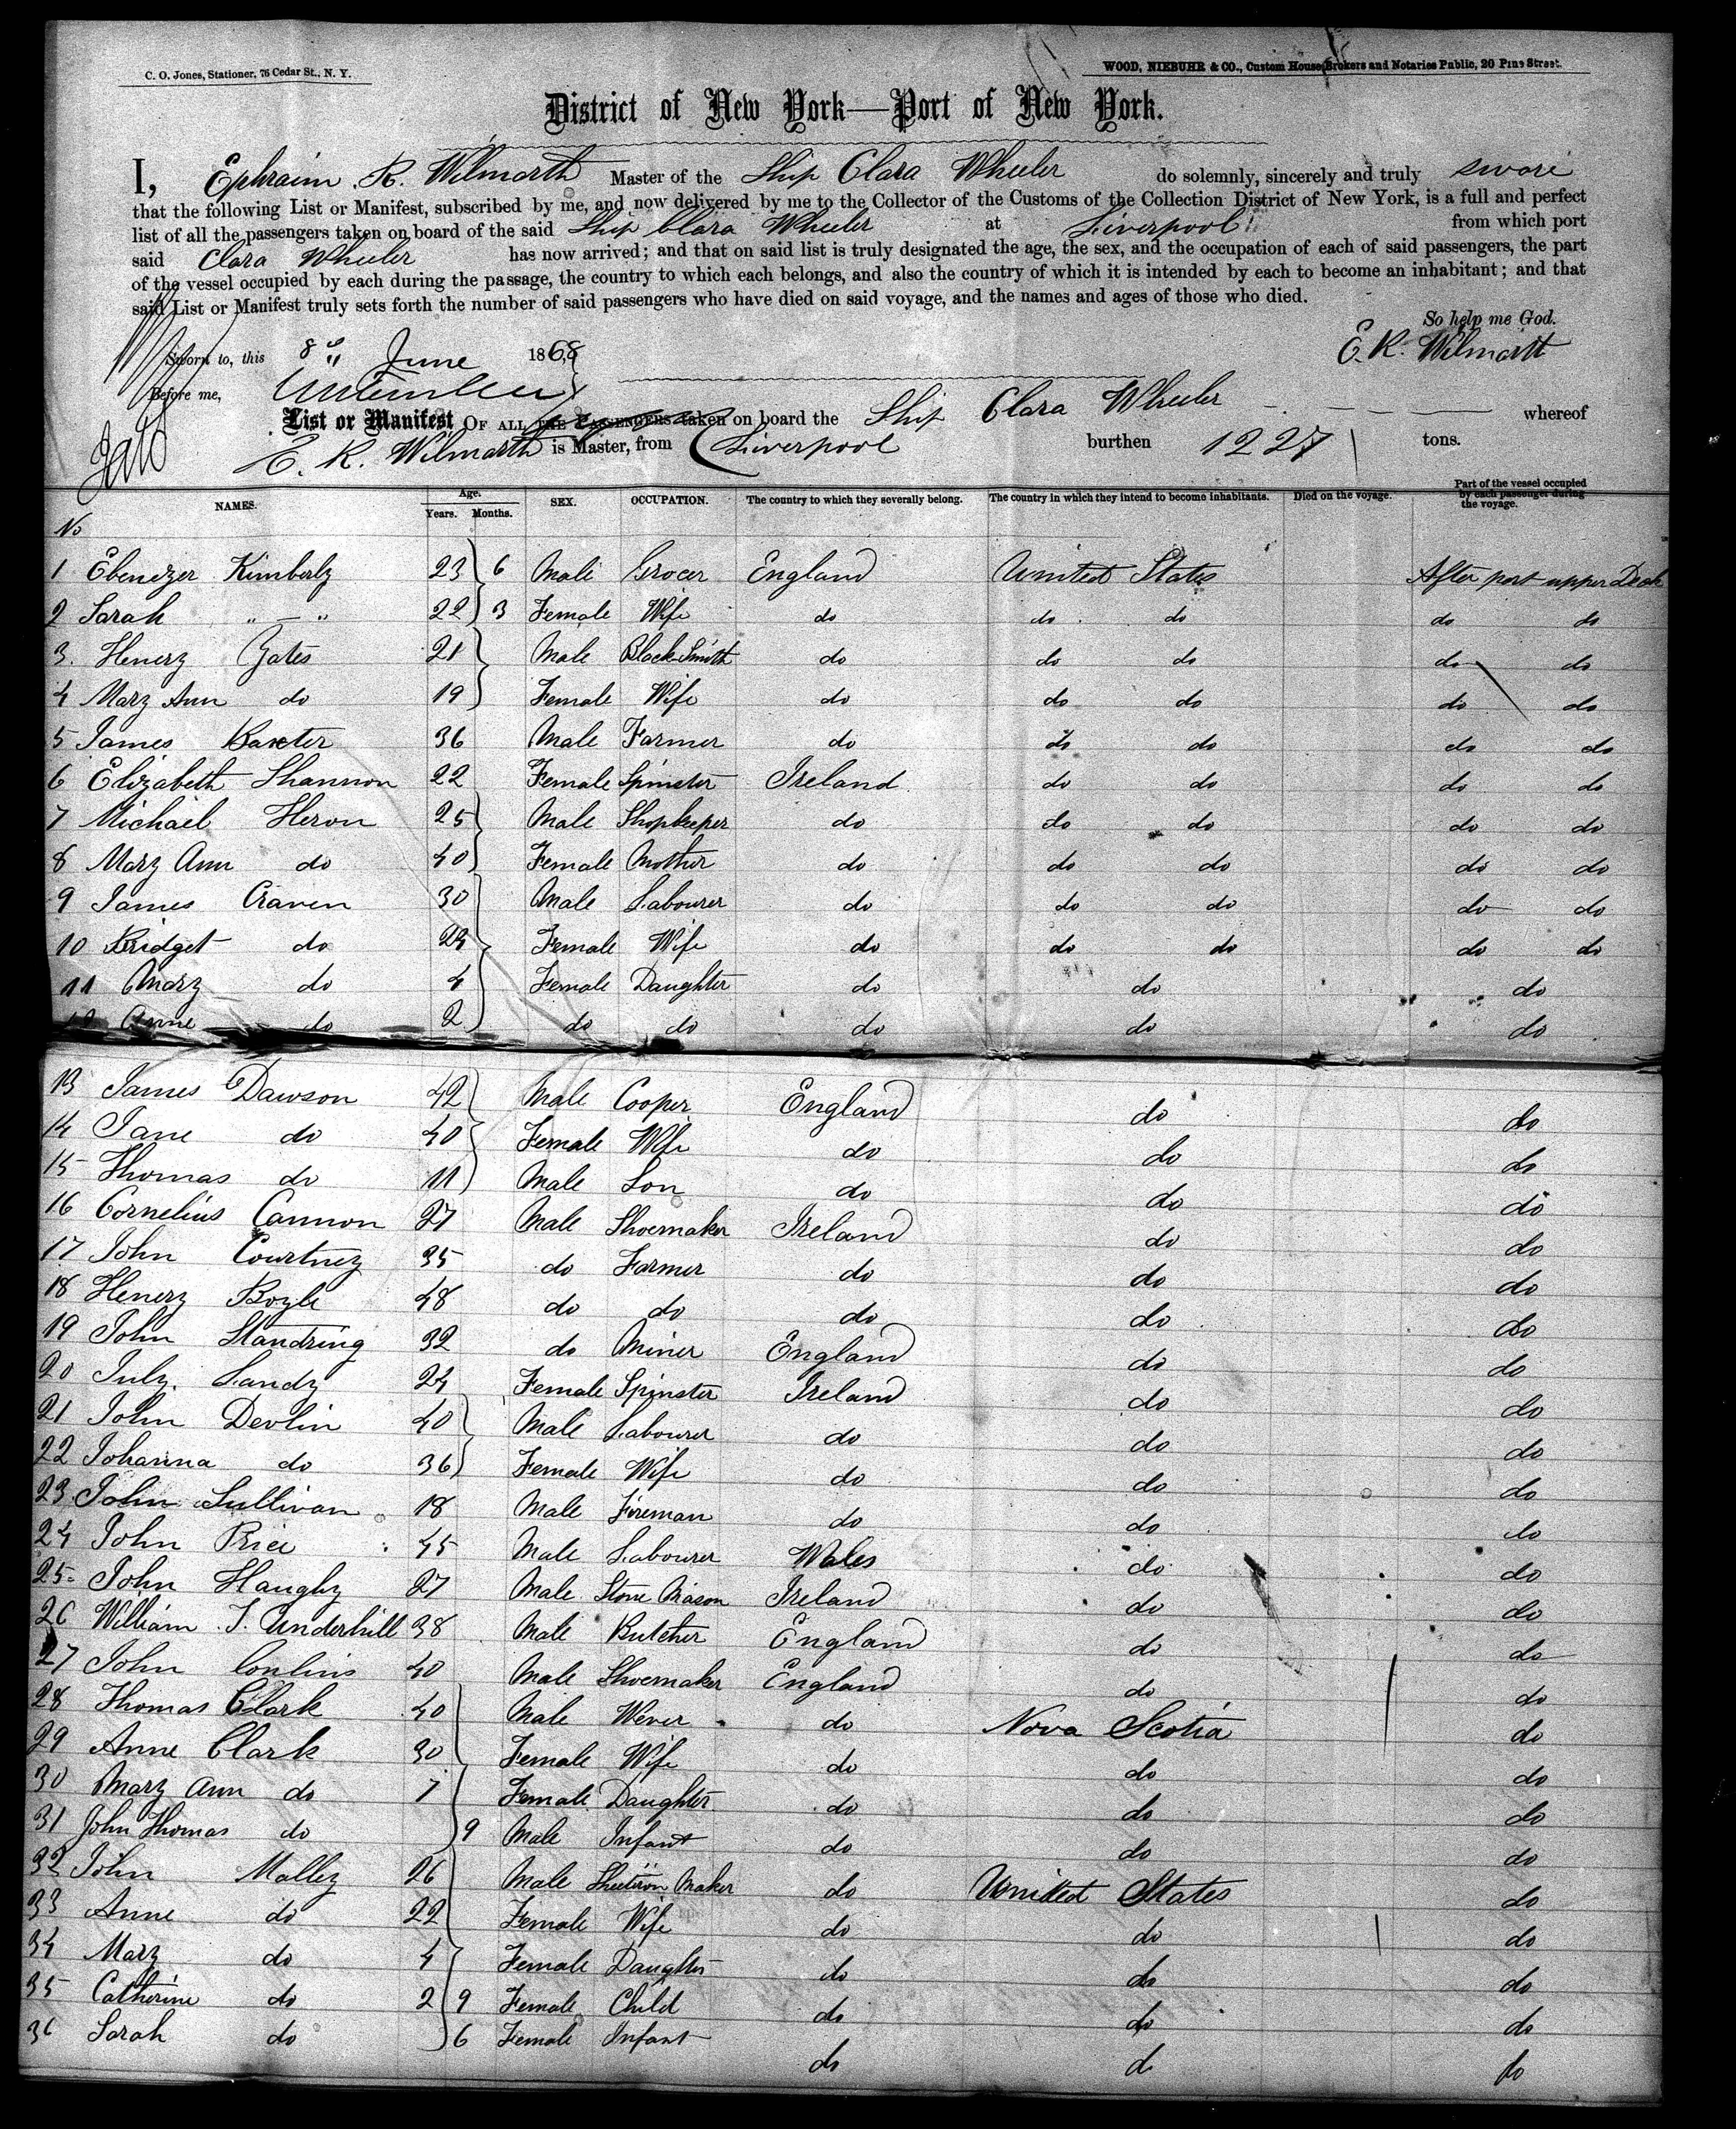 C. O. Jones, Stationer, 76 Cedar St., N. Y.
WOOD, NIEBUHR & CO., Custom House Brokers and Notaries Public, 20 Pine Street.
District of New York—Port of New York.
I, Ephraim R. Wilmarth Master of the Ship Clara Wheeler do solemnly, sincerely and truly swore
that the following List or Manifest, subscribed by me, and now delivered by me to the Collector of the Customs of the Collection District of New York, is a full and perfect
list of all the passengers taken on board of the said Ship Clara Wheeler at Liverpool from which port
said Clara Wheeler has now arrived; and that on said list is truly designated the age, the sex, and the occupation of each of said passengers, the part
of the vessel occupied by each during the passage, the country to which each belongs, and also the country of which it is intended by each to become an inhabitant; and that
said List or Manifest truly sets forth the number of said passengers who have died on said voyage, and the names and ages of those who died.
So help me God.
Sworn to, this 8th June 1868 E. R. Wilmarth
Before me,
List or Manifest OF ALL THE PASSENGERS taken on board the Ship Clara Wheeler whereof
E. R. Wilmarth is Master, from Liverpool burthen 1227 tons.
No NAMES. Age. Years. Months. SEX. OCCUPATION. The country to which they severally belong. The country in which they intend to become inhabitants. Died on the voyage. Part of the vessel occupied by each passenger during the voyage.
1 Ebenezer Kimberly 23 6 Male Grocer England United States After part upper Deck
2 Sarah " — " 22 3 Female Wife do do do do do
3. Henery Yates 21 Male Black-Smith do do do do do
4 Mary Ann do 19 Female Wife do do do do do
5 James Baxter 36 Male Farmer do do do do do
6 Elizabeth Shannon 22 Female Spinster Ireland do do do do
7 Michael Heron 25 Male Shopkeeper do do do do do
8 Mary Ann do 40 Female Mother do do do do do
9 James Craven 30 Male Labourer do do do do do
10 Bridget do 24 Female Wife do do do do do
11 Mary do 4 Female Daughter do do do
12 Anne do 2 do do do do do
13 James Dawson 42 Male Cooper England do do
14 Jane do 40 Female Wife do do do
15 Thomas do 11 Male Son do do do
16 Cornelius Cannon 27 Male Shoemaker Ireland do do
17 John Courtney 35 do Farmer do do do
18 Henery Boyle 48 do do do do do
19 John Standring 32 do Miner England do do
20 July Landy 24 Female Spinster Ireland do do
21 John Devlin 40 Male Labourer do do do
22 Johanna do 36 Female Wife do do do
23 John Sullivan 18 Male Fireman do do do
24 John Price 45 Male Labourer Wales do do
25 John Haughy 27 Male Stone Mason Ireland do do
26 William J. Underhill 38 Male Butcher England do do
27 John Conlins 40 Male Shoemaker England do do
28 Thomas Clark 40 Male Wever do Nova Scotia do
29 Anne Clark 30 Female Wife do do do
30 Mary Ann do 7 Female Daughter do do do
31 John Thomas do 9 Male Infant do do do
32 John Malley 26 Male Sheetiron Maker do United States do
33 Anne do 22 Female Wife do do do
34 Mary do 4 Female Daughter do do do
35 Catherine do 2 9 Female Child do do do
36 Sarah do 6 Female Infant do d do